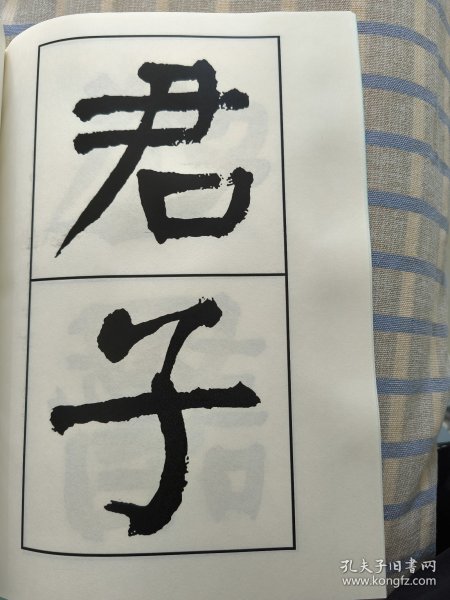 君
子
孔夫子旧书网
www.kongfz.com